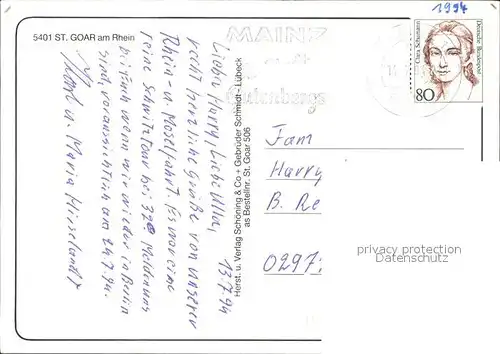 1994
5401 ST. GOAR am Rhein
MAINZ
Gutenbergs
Clara Schumann
Deutsche Bundespost
80
13.7.94
Liebe Harry, Liebe Ulla,
recht herzliche Grüße von unserer
Rhein- u. Moselfahrt. Es war eine
reine Schwitztour bei 32° Melden uns
telefonisch wenn wir wieder in Berlin
sind, voraussichtlich am 24.7.94.
Horst u. Maria
Herst. u. Verlag Schöning & Co + Gebrüder Schmidt - Lübeck
as Bestellnr. St. Goar 506
Fam
Harry
B. Re
0297
privacy protection
Datenschutz